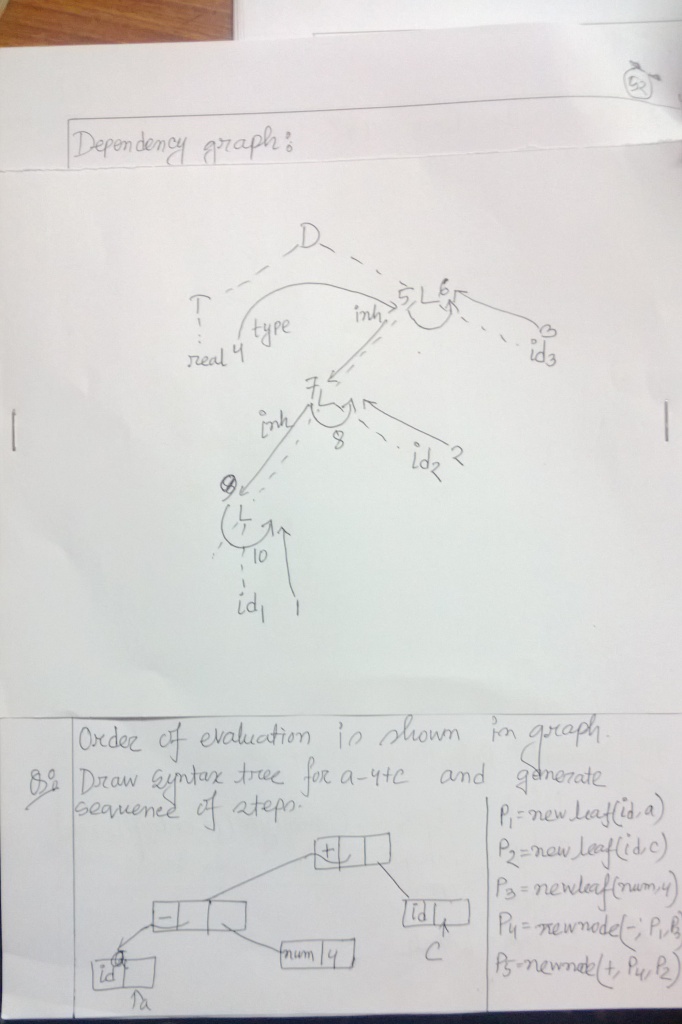 52
Dependency graph:
D
T
5 L 6
type
inh
real 4
3
id3
7
L
inh
8
id2 2
9
L
10
id1 1
Order of evaluation is shown in graph.
Q: Draw syntax tree for a-4+c and generate
sequence of steps.
P1 = new leaf(id, a)
P2 = new leaf(id, c)
P3 = newleaf(num, 4)
P4 = newnode(-, P1, P3)
P5 = newnode(+, P4, P2)
+
-
id
num 4
c
id
a